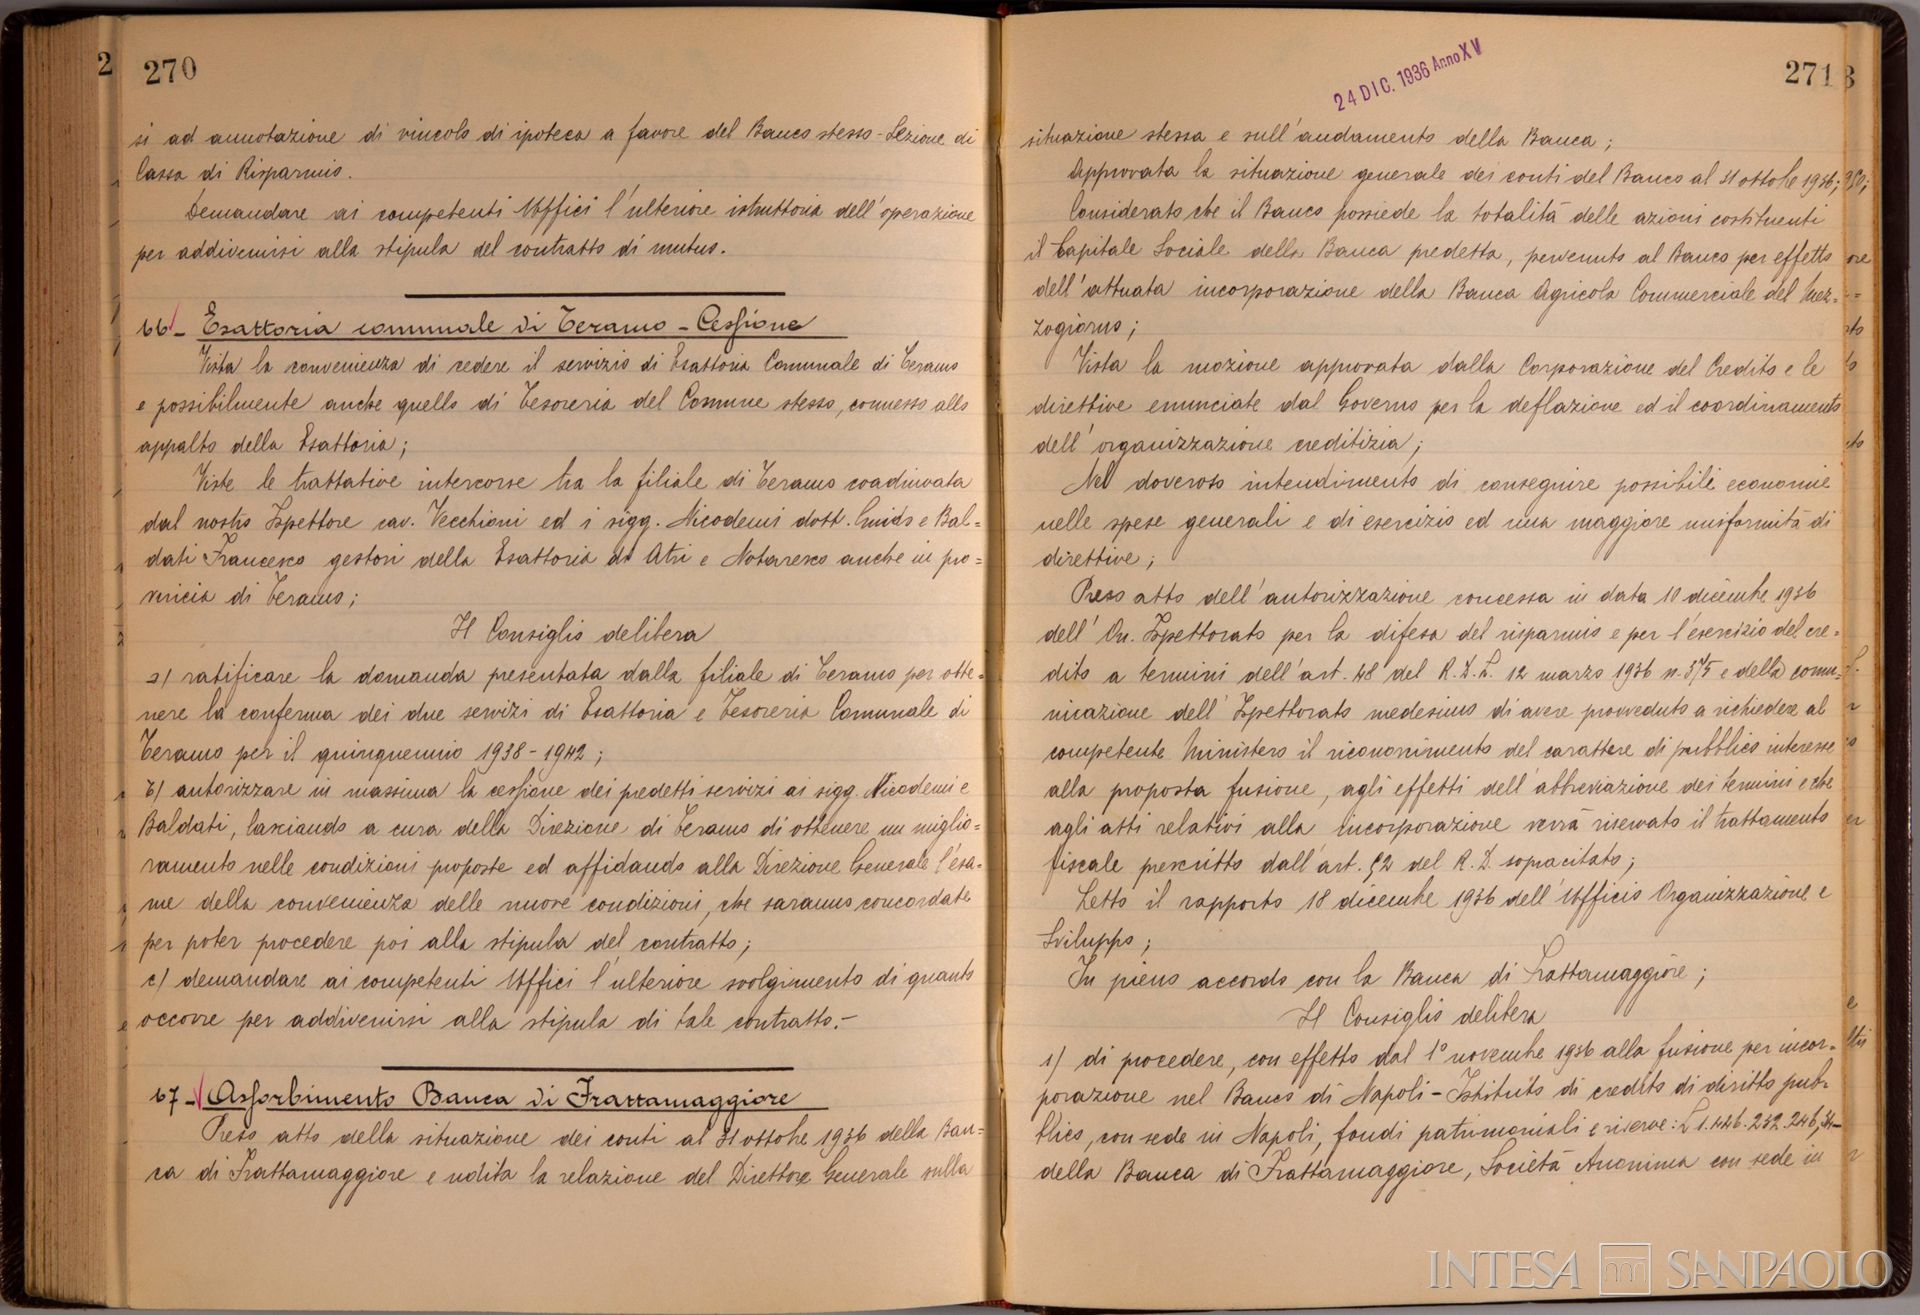 2
270
si ad annotazione di vincolo di ipoteca a favore del Banco stesso - Sezione di
Cassa di Risparmio.
Demandare ai competenti Uffici l'ulteriore istruttoria dell'operazione
per addivenirsi alla stipula del contratto di mutuo.
66 - Esattoria comunale di Teramo - Cessione
Vista la convenienza di cedere il servizio di Esattoria Comunale di Teramo
e possibilmente anche quello di Tesoreria del Comune stesso, connesso allo
appalto della Esattoria;
Viste le trattative intercorse tra la filiale di Teramo coadiuvata
dal nostro Ispettore cav. Vecchioni ed i sigg. Nicodemi dott. Guido e Bal=
dati Francesco gestori della Esattoria di Atri e Notaresco anche in pro=
vincia di Teramo;
Il Consiglio delibera
a) ratificare la domanda presentata dalla filiale di Teramo per otte=
nere la conferma dei due servizi di Esattoria e Tesoreria Comunale di
Teramo per il quinquennio 1938 - 1942;
b) autorizzare in massima la cessione dei predetti servizi ai sigg. Nicodemi e
Baldati, lasciando a cura della Direzione di Teramo di ottenere un miglio=
ramento nelle condizioni proposte ed affidando alla Direzione Generale l'esa=
me della convenienza delle nuove condizioni, che saranno concordate
per poter procedere poi alla stipula del contratto;
c) demandare ai competenti Uffici l'ulteriore svolgimento di quanto
occorre per addivenirsi alla stipula di tale contratto.-
67 - Assorbimento Banca di Frattamaggiore
Preso atto della situazione dei conti al 31 ottobre 1936 della Ban=
ca di Frattamaggiore e udita la relazione del Direttore Generale sulla
24 DIC. 1936 Anno XV
271
situazione stessa e sull'andamento della Banca;
Approvata la situazione generale dei conti del Banco al 31 ottobre 1936;
Considerato che il Banco possiede la totalità delle azioni costituenti
il Capitale Sociale della Banca predetta, pervenuto al Banco per effetto
dell'attuata incorporazione della Banca Agricola Commerciale del Mez=
zogiorno;
Vista la mozione approvata dalla Corporazione del Credito e le
direttive enunciate dal Governo per la deflazione ed il coordinamento
dell'organizzazione creditizia;
Nel doveroso intendimento di conseguire possibili economie
nelle spese generali e di esercizio ed una maggiore uniformità di
direttive;
Preso atto dell'autorizzazione concessa in data 10 dicembre 1936
dell'On. Ispettorato per la difesa del risparmio e per l'esercizio del cre=
dito a termini dell'art. 48 del R. D. L. 12 marzo 1936 n. 375 e della comu=
nicazione dell'Ispettorato medesimo di avere provveduto a richiedere al
competente Ministero il riconoscimento del carattere di pubblico interesse
alla proposta fusione, agli effetti dell'abbreviazione dei termini e che
agli atti relativi alla incorporazione verrà riservato il trattamento
fiscale prescritto dall'art. 52 del R. D. sopracitato;
Letto il rapporto 18 dicembre 1936 dell'Ufficio Organizzazione e
Sviluppo;
In pieno accordo con la Banca di Frattamaggiore;
Il Consiglio delibera
1) di procedere, con effetto dal 1° novembre 1936 alla fusione per incor=
porazione nel Banco di Napoli - Istituto di credito di diritto pub=
blico, con sede in Napoli, fondi patrimoniali e riserve: L 1.446.252.246,34 -
della Banca di Frattamaggiore, Società Anonima con sede in
INTESA SANPAOLO